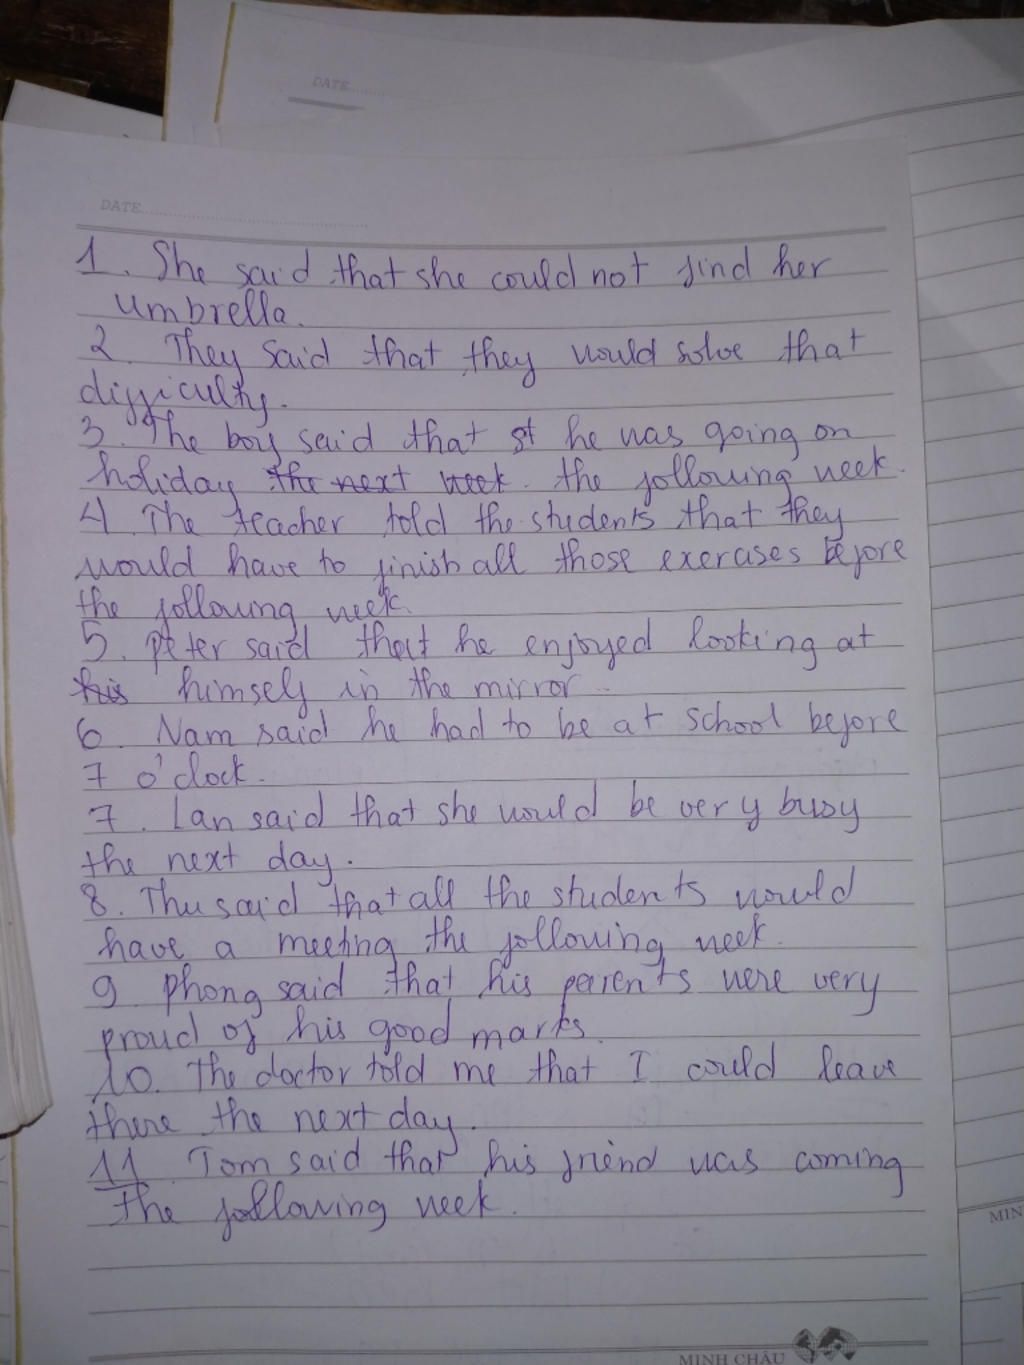 DATE
DATE
1. She said that she could not find her
umbrella.
2. They said that they would solve that
difficulty.
3. The boy said that st he was going on
holiday the next week. the following week.
4. The teacher told the students that they
would have to finish all those exercises before
the following week.
5. Peter said that he enjoyed looking at
his himself in the mirror.
6. Nam said he had to be at school before
7 o'clock.
7. Lan said that she would be very busy
the next day.
8. Thu said that all the students would
have a meeting the following week.
9. Phong said that his parents were very
proud of his good marks.
10. The doctor told me that I could leave
there the next day.
11. Tom said that his friend was coming
the following week.
MIN
MINH CHÂU